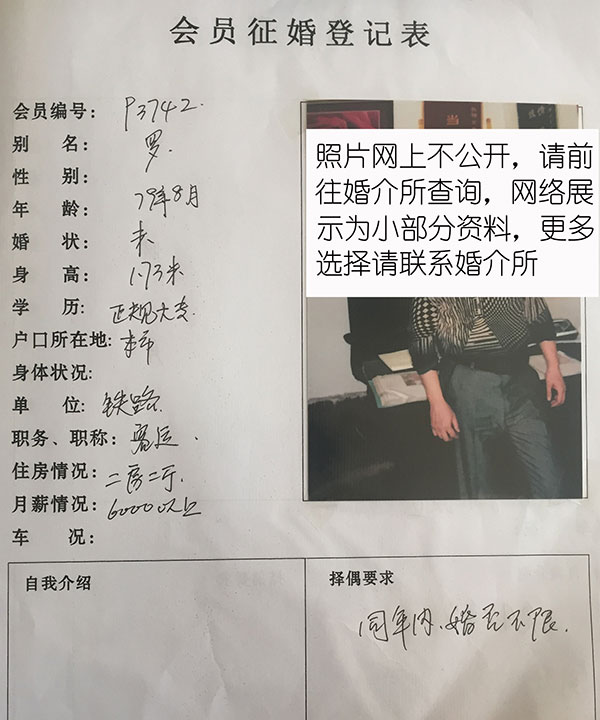 会员征婚登记表
会员编号: P3742.
别 名: 罗.
性 别:
年 龄: 79年8月
婚 状: 未
身 高: 1.73米
学 历: 正规大专
户口所在地: 本市
身体状况:
单 位: 铁路
职务、职称: 客运.
住房情况: 二房二厅.
月薪情况: 6000以上
车 况:
照片网上不公开，请前
往婚介所查询，网络展
示为小部分资料，更多
选择请联系婚介所
自我介绍
择偶要求
同年内、婚否不限.